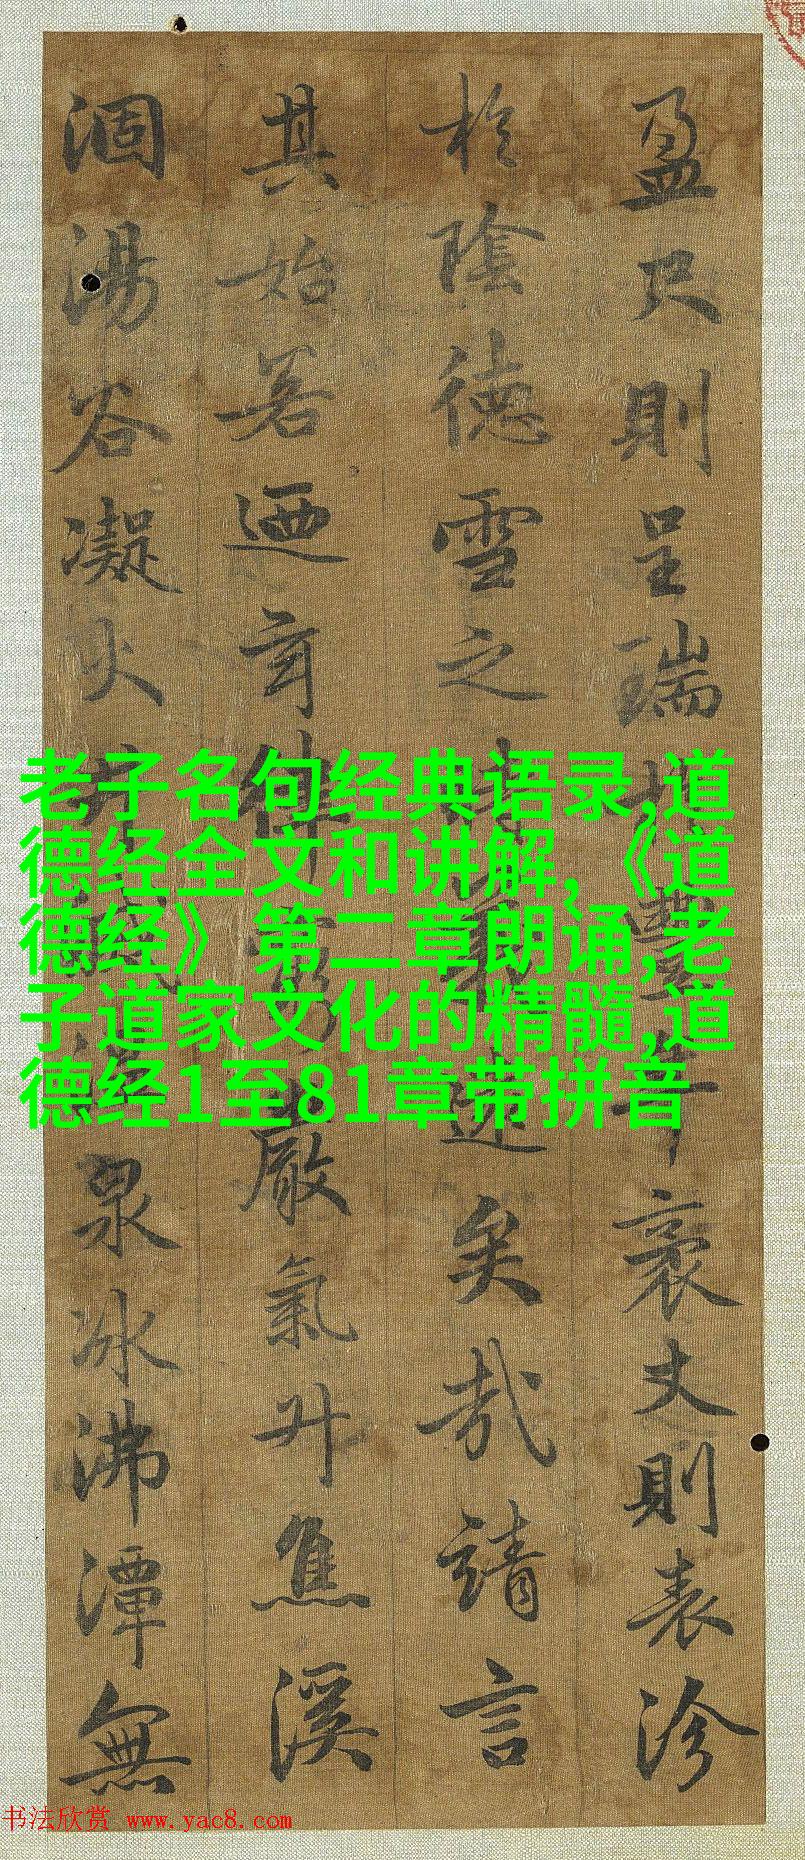 盈尺則呈瑞於豐年袤丈則表沴
於陰德雪之時遠矣哉請言
其始若迺玄律窮嚴氣升焦溪
涸湯谷凝火井泉冰沸潭無
老子名句经典语录,道
德经全文和讲解,《道
德经》第二章朗诵,老
子道家文化的精髓,道
德经1至81章带拼音
书法欣赏 www.yac8.com